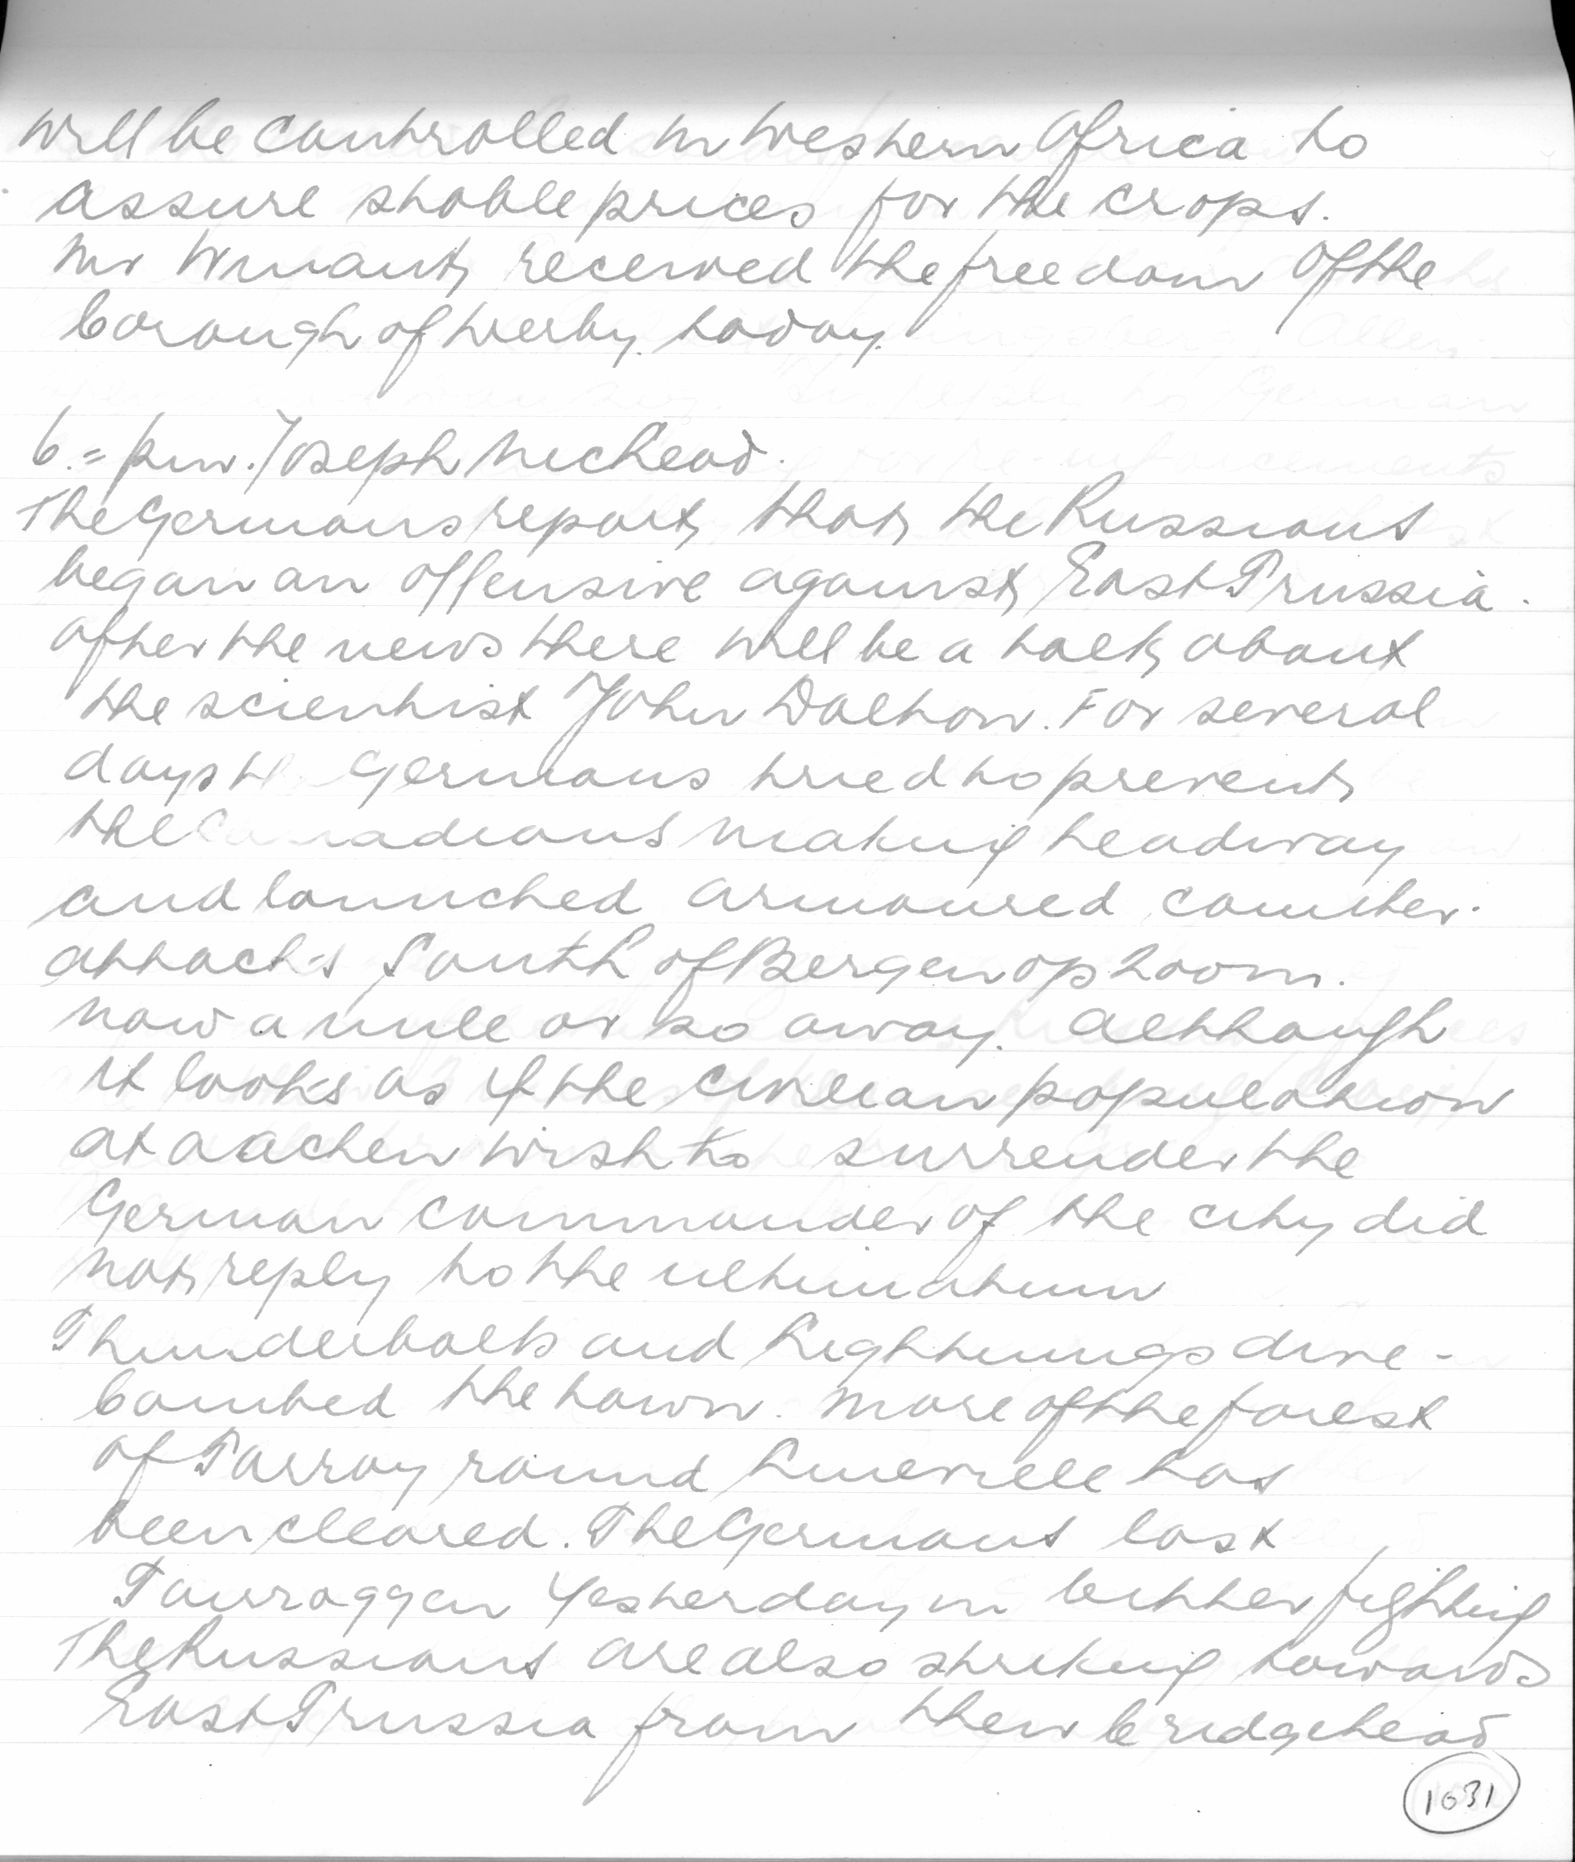 will be controlled in Western Africa to
assure stable prices for the crops.
Mr Winant received the freedom of the
borough of today.
6.= p.m. Joseph McLeod.
The Germans report that the Russians
began an offensive against East Prussia.
After the news there will be a talk about
the scientist John Dalton. For several
days the Germans tried to prevent
the Canadians making headway
and launched armoured counter-
attacks South of Bergen op Zoom.
now a mile or so away. Although
it looks as if the civilian population
at Aachen wish to surrender the
German commander of the city did
not reply to the ultimatum
Thunderbolts and Lightnings dive-
bombed the town. More of the forest
of Parroy round Luneville has
been cleared. The Germans lost
Tauroggen yesterday in bitter fighting
The Russians are also striking towards
East Prussia from their bridgehead
1031